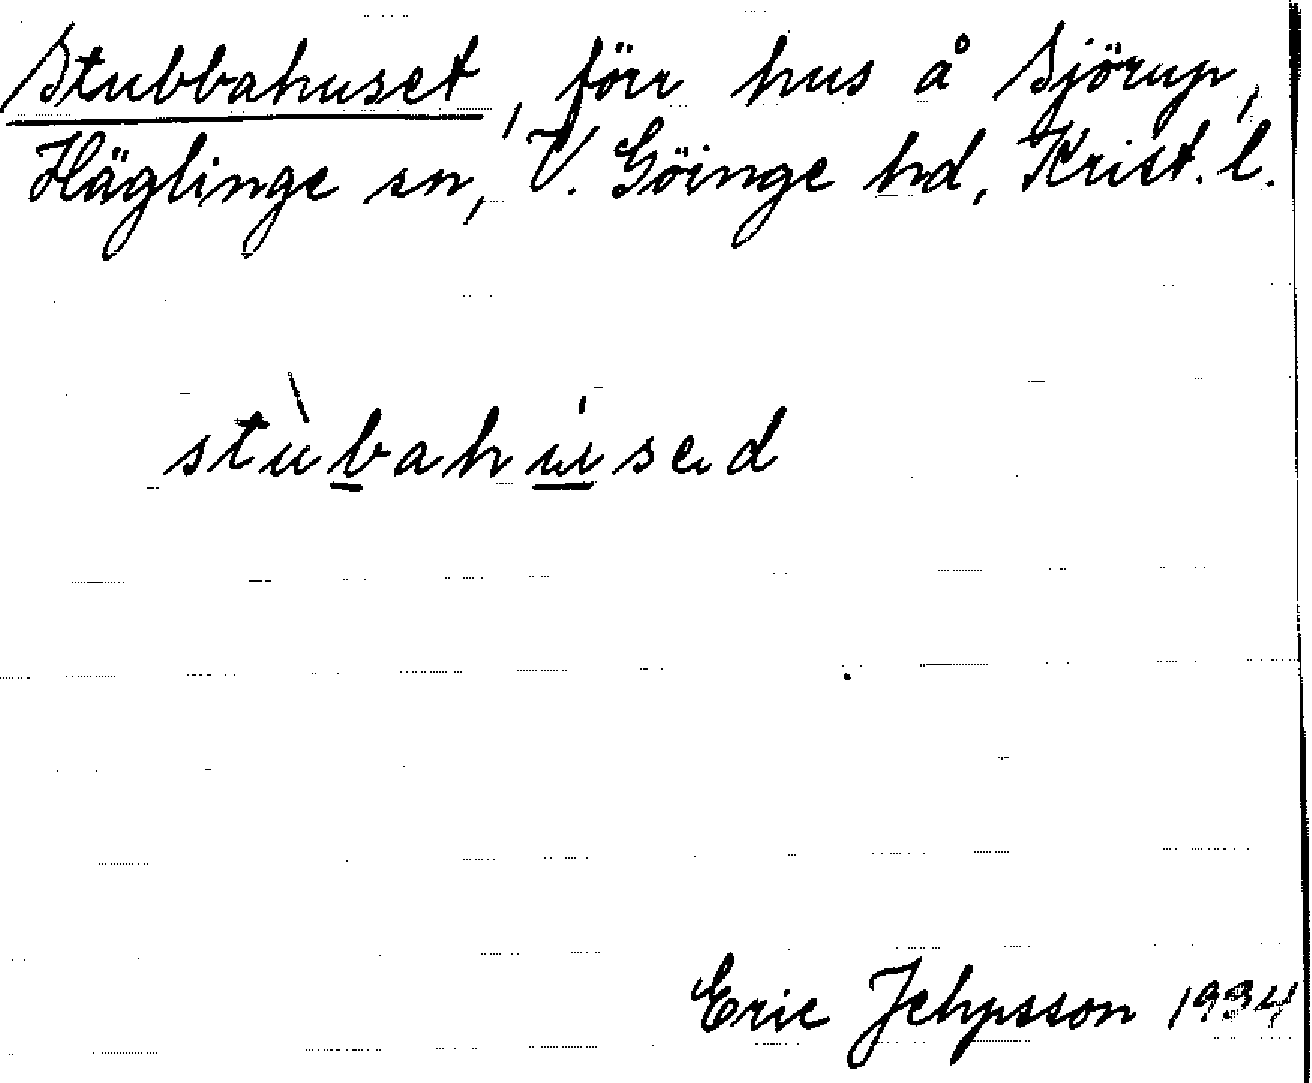 Stubbahuset, förr hus å Sjörup,
Häglinge sn, V. Göinge hd, Krist. l.
stùbahúsed
Eric Jehpsson 1934